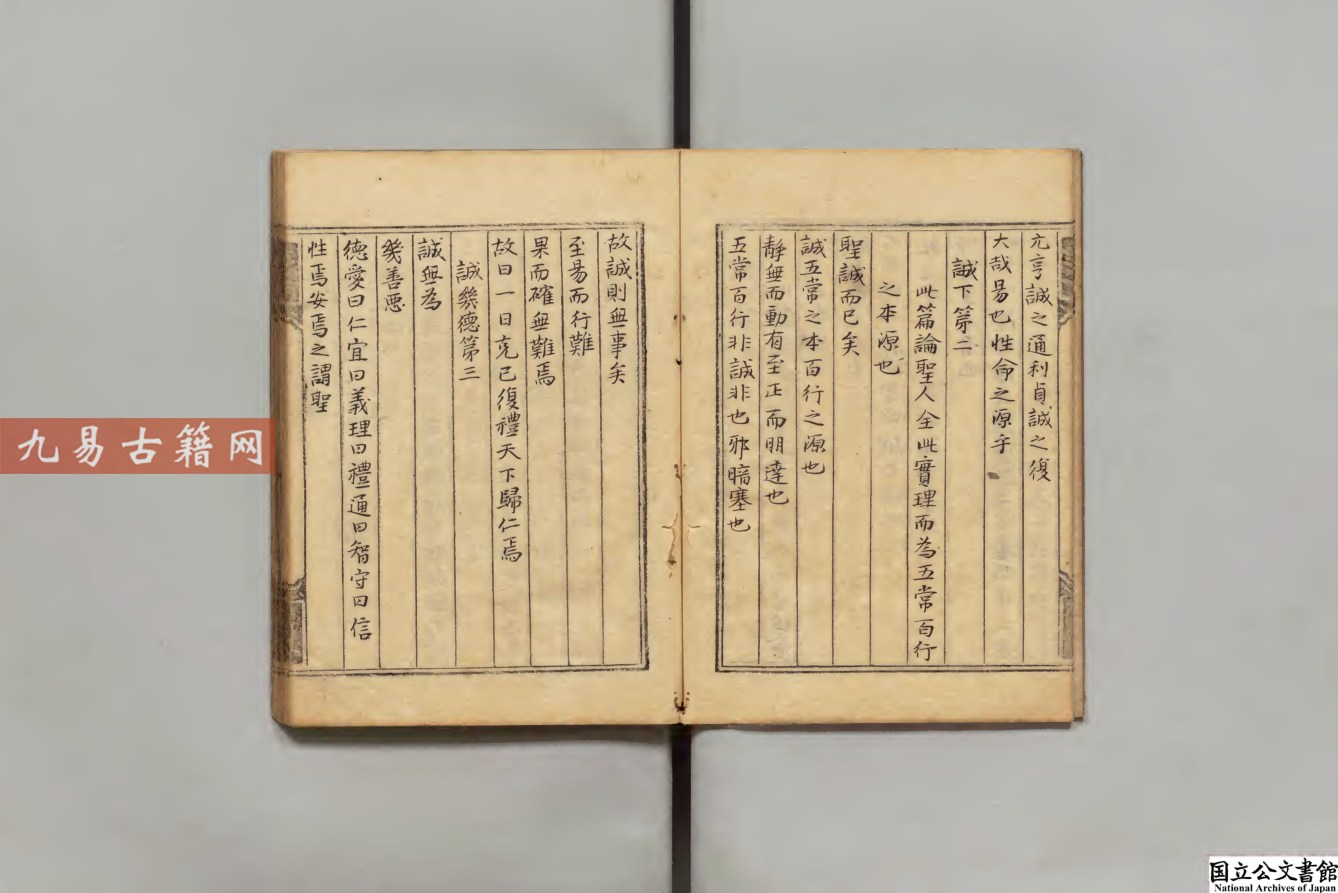 元亨誠之通利貞誠之復
大哉易也性命之源乎
誠下第二
此篇論聖人全此實理而為五常百行
之本源也
聖誠而已矣
誠五常之本百行之源也
靜無而動有至正而明達也
五常百行非誠非也邪暗塞也
故誠則無事矣
至易而行難
果而確無難焉
故曰一日克已復禮天下歸仁焉
誠幾德第三
誠無為
幾善惡
德愛曰仁宜曰義理曰禮通曰智守曰信
性焉安焉之謂聖
九易古籍网
国立公文書館
National Archives of Japan